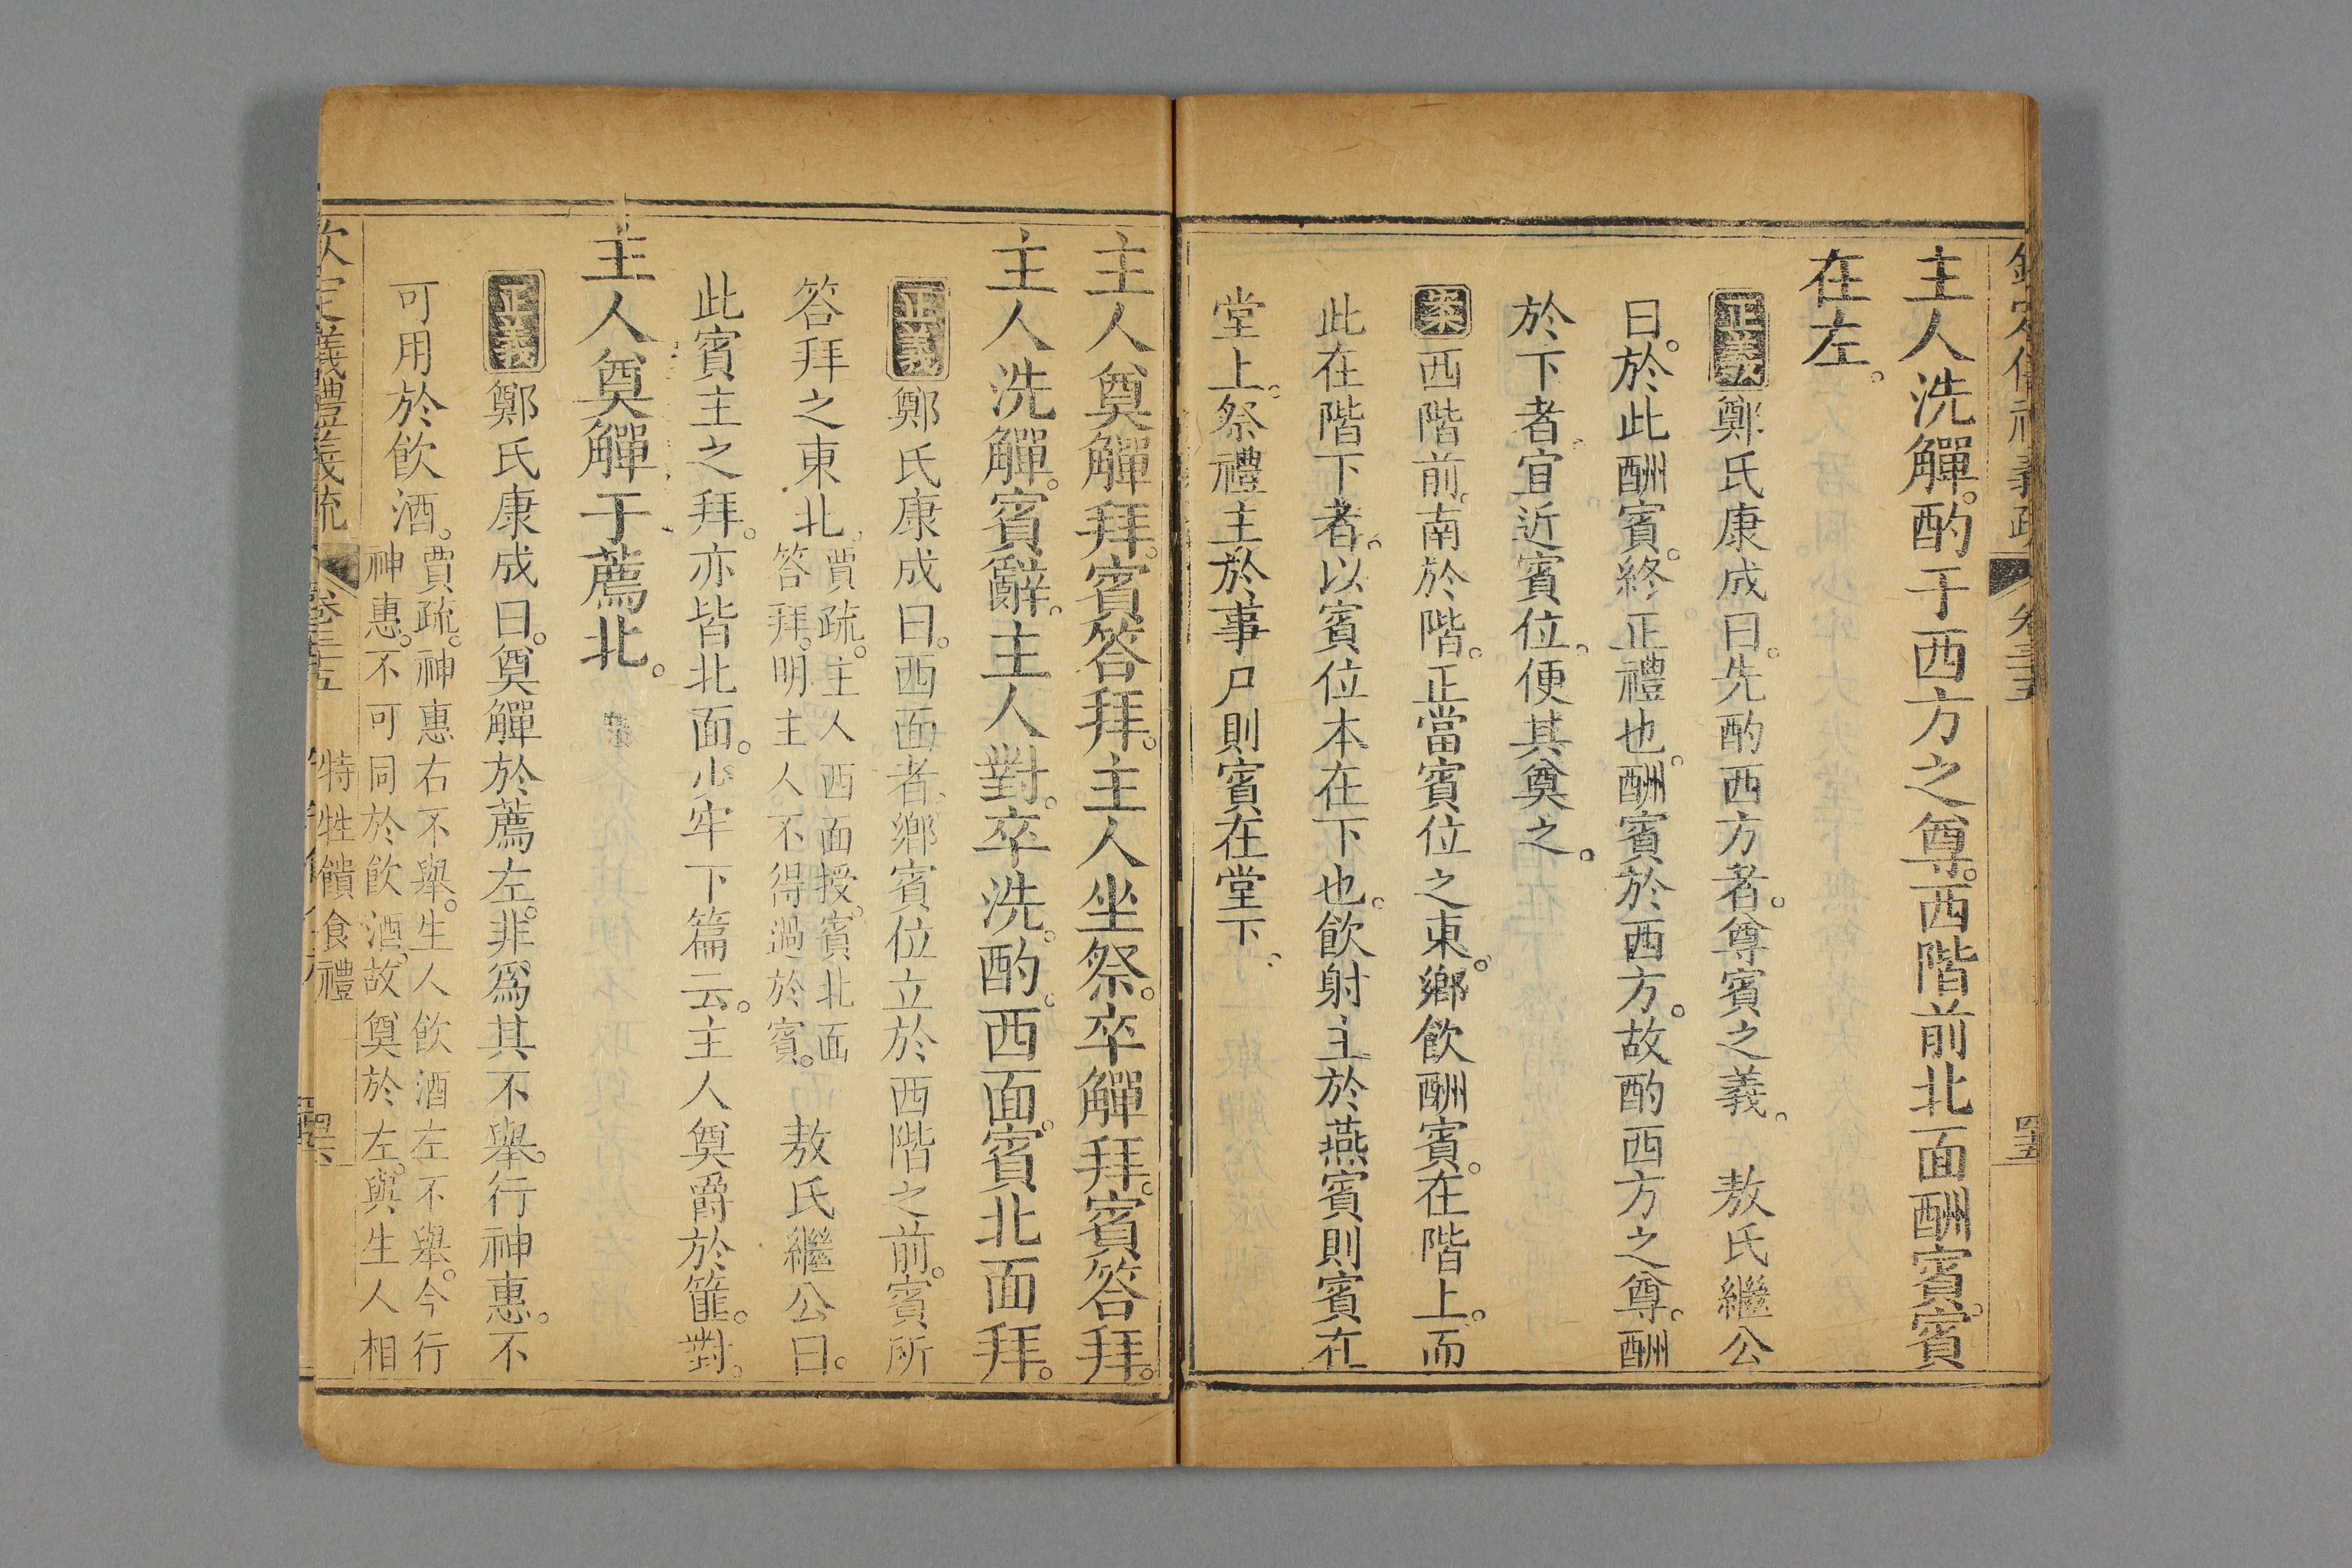 主人洗觶。酌于西方之尊。西階前北面酬賓。賓
在左。
正義鄭氏康成曰。先酌西方者。尊賓之義。 敖氏繼公
曰。於此酬賓。終正禮也。酬賓於西方。故酌西方之尊。酬
於下者。宜近賓位。便其奠之。
案西階前。南於階。正當賓位之東。鄉飲酬賓。在階上。而
此在階下者。以賓位本在下也。飲射主於燕賓則賓在
堂上。祭禮主於事尸則賓在堂下。
主人奠觶拜。賓答拜。主人坐祭。卒觶拜。賓答拜。
主人洗觶。賓辭。主人對。卒洗。酌。西面。賓北面拜。
正義鄭氏康成曰。西面者。鄉賓位立於西階之前。賓所
答拜之東北。
賈疏。主人西面授。賓北面
答拜。明主人不得過於賓。
敖氏繼公曰。
此賓主之拜。亦皆北面。少牢下篇云。主人奠爵於篚。對。
主人奠觶于薦北。
正義鄭氏康成曰。奠觶於薦左。非爲其不舉。行神惠。不
可用於飲酒。
賈疏。神惠右不舉。生人飲酒左不舉。今行
神惠。不可同於飲酒。故奠於左。與生人相
欽定義禮義疏 卷三十五 特牲饋食禮